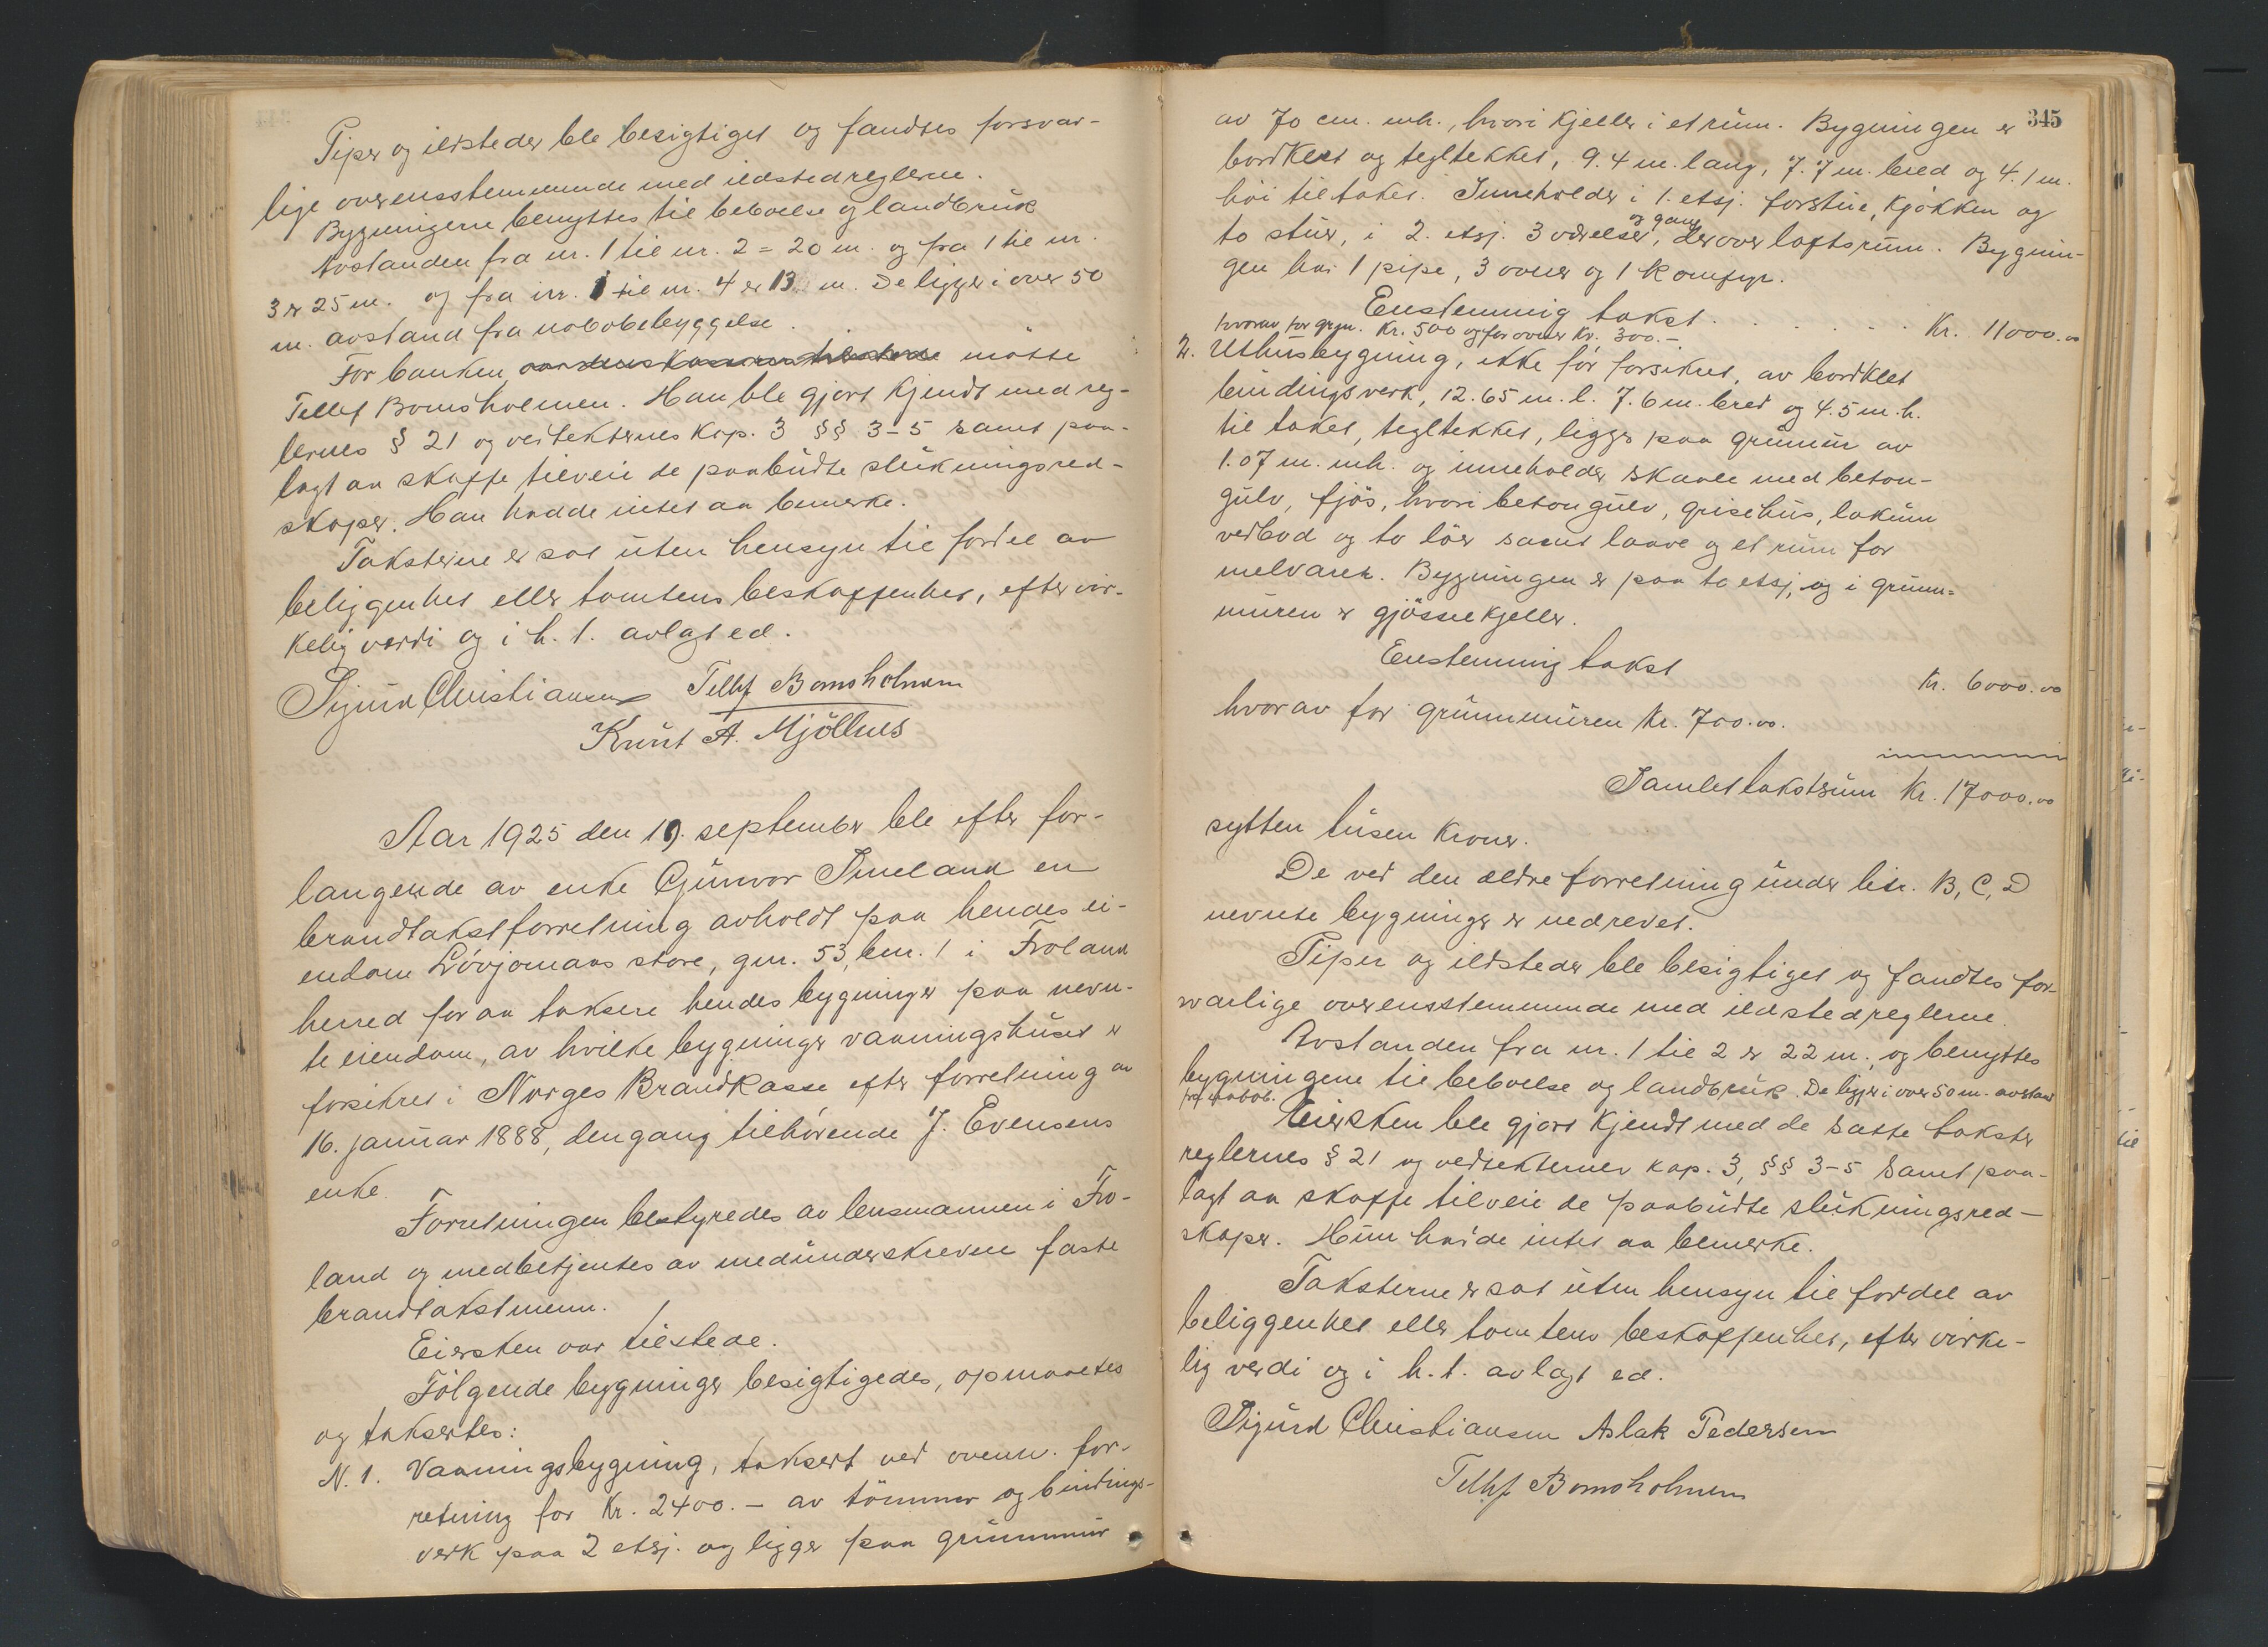 Piper og ildsteder ble besigtiget og fandtes forsvar-
lige overensstemmende med ildstedreglerne.
Bygningerne benyttes til beboelse og landbruk
Avstanden fra nr. 1 til nr. 2 = 20 m. og fra 1 til nr.
3 er 25 m. og fra nr. 1 til nr. 4 er 13 m. De ligger i over 50
m. avstand fra nabobebyggelse.
For banken møtte
Tellef Bomsholmen. Han ble gjort kjendt med reg-
lernes § 21 og vedtekternes kap. 3 §§ 3-5 samt paa-
lagt aa skaffe tilveie de paabudte slukningsred-
skaper. Han hadde intet aa bemerke.
Taksterne er sat uten hensyn til fordel av
beliggenhet eller tomtens beskaffenhet, efter vir-
kelig verdi og i h. t. avlagt ed.
Sigurd Christiansen Tellef Bomsholmen
Knut A. Mjöllnes
Aar 1925 den 19. september ble efter for-
langende av enke Gunvor Imeland en
brandtakstforretning avholdt paa hendes ei-
endom Lövjomaas store, gnr. 53, bnr. 1 i Froland
herred for aa taksere hendes bygninger paa nevn-
te eiendom, av hvilke bygninger vaaningshuset er
forsikret i Norges Brandkasse efter forretning av
16. januar 1888, dengang tilhørende J. Evensens
enke.
Forretningen bestyredes av lensmannen i Fro-
land og medbetjentes av medunderskrevne faste
brandtakstmenn.
Eiersken var tilstede.
Følgende bygninger besigtigedes, opmaaltes
og taksertes:
N. 1. Vaaningsbygning, taksert ved ovenn. for-
retning for Kr. 2400.- av tömmer og bindings-
verk paa 2 etsj. og ligger paa grunnmur
345
av 70 cm. mh., hvori kjeller i et rum. Bygningen er
bordklet og tegltekket, 9.4 m. lang, 7.7 m. bred og 4.1 m.
høi til taket. Inneholder i 1. etsj. forstue, kjøkken og
og gang
to stuer, i 2. etsj. 3 værelser, derover loftsrum. Bygnin-
gen har 1 pipe, 3 ovner og 1 komfyr.
Enstemmig takst . . . . . . . Kr. 11000.00
hvorav for grm. Kr. 500 og for ovner Kr. 300.-
2. Uthusbygning, ikke før forsikret, av bordklet
bindingsverk, 12.65 m. l. 7.6 m. bred og 4.5 m. h.
til taket, tegltekket, ligger paa grunmur av
1.07 m. mh. og inneholder skaale med beton-
gulv, fjös, hvori betongulv, grisehus, lokum
vedbod og to löer samt laave og et rum for
melvarer. Bygningen er paa to etsj, og i grunn-
muren er gjösselkjeller.
Enstemmig takst
Kr. 6000.00
hvorav for grunnmuren Kr. 700.00.
Samlet takstsum Kr. 17000.00
sytten tusen kroner.
De ved den ældre forretning under litr. B, C, D
nevnte bygninger er nedrevet.
Piper og ildsteder ble besigtiget og fandtes for-
svarlige overensstemmende med ildstedreglerne.
Avstanden fra nr. 1 til 2 er 22 m., og benyttes
bygningene til beboelse og landbruk. De ligger i over 50 m. avstand
fra nabob.
Eiersken ble gjort kjendt med de satte takster
reglernes § 21 og vedtekternes kap. 3, §§ 3-5 samt paa-
lagt aa skaffe tilveie de paabudte slukningsred-
skaper. Hun hadde intet aa bemerke.
Taksterne er sat uten hensyn til fordel av
beliggenhet eller tomtens beskaffenhet, efter virke-
lig verdi og i h. t. avlagt ed.
Sigurd Christiansen Aslak Pedersen
Tellef Bomsholmen